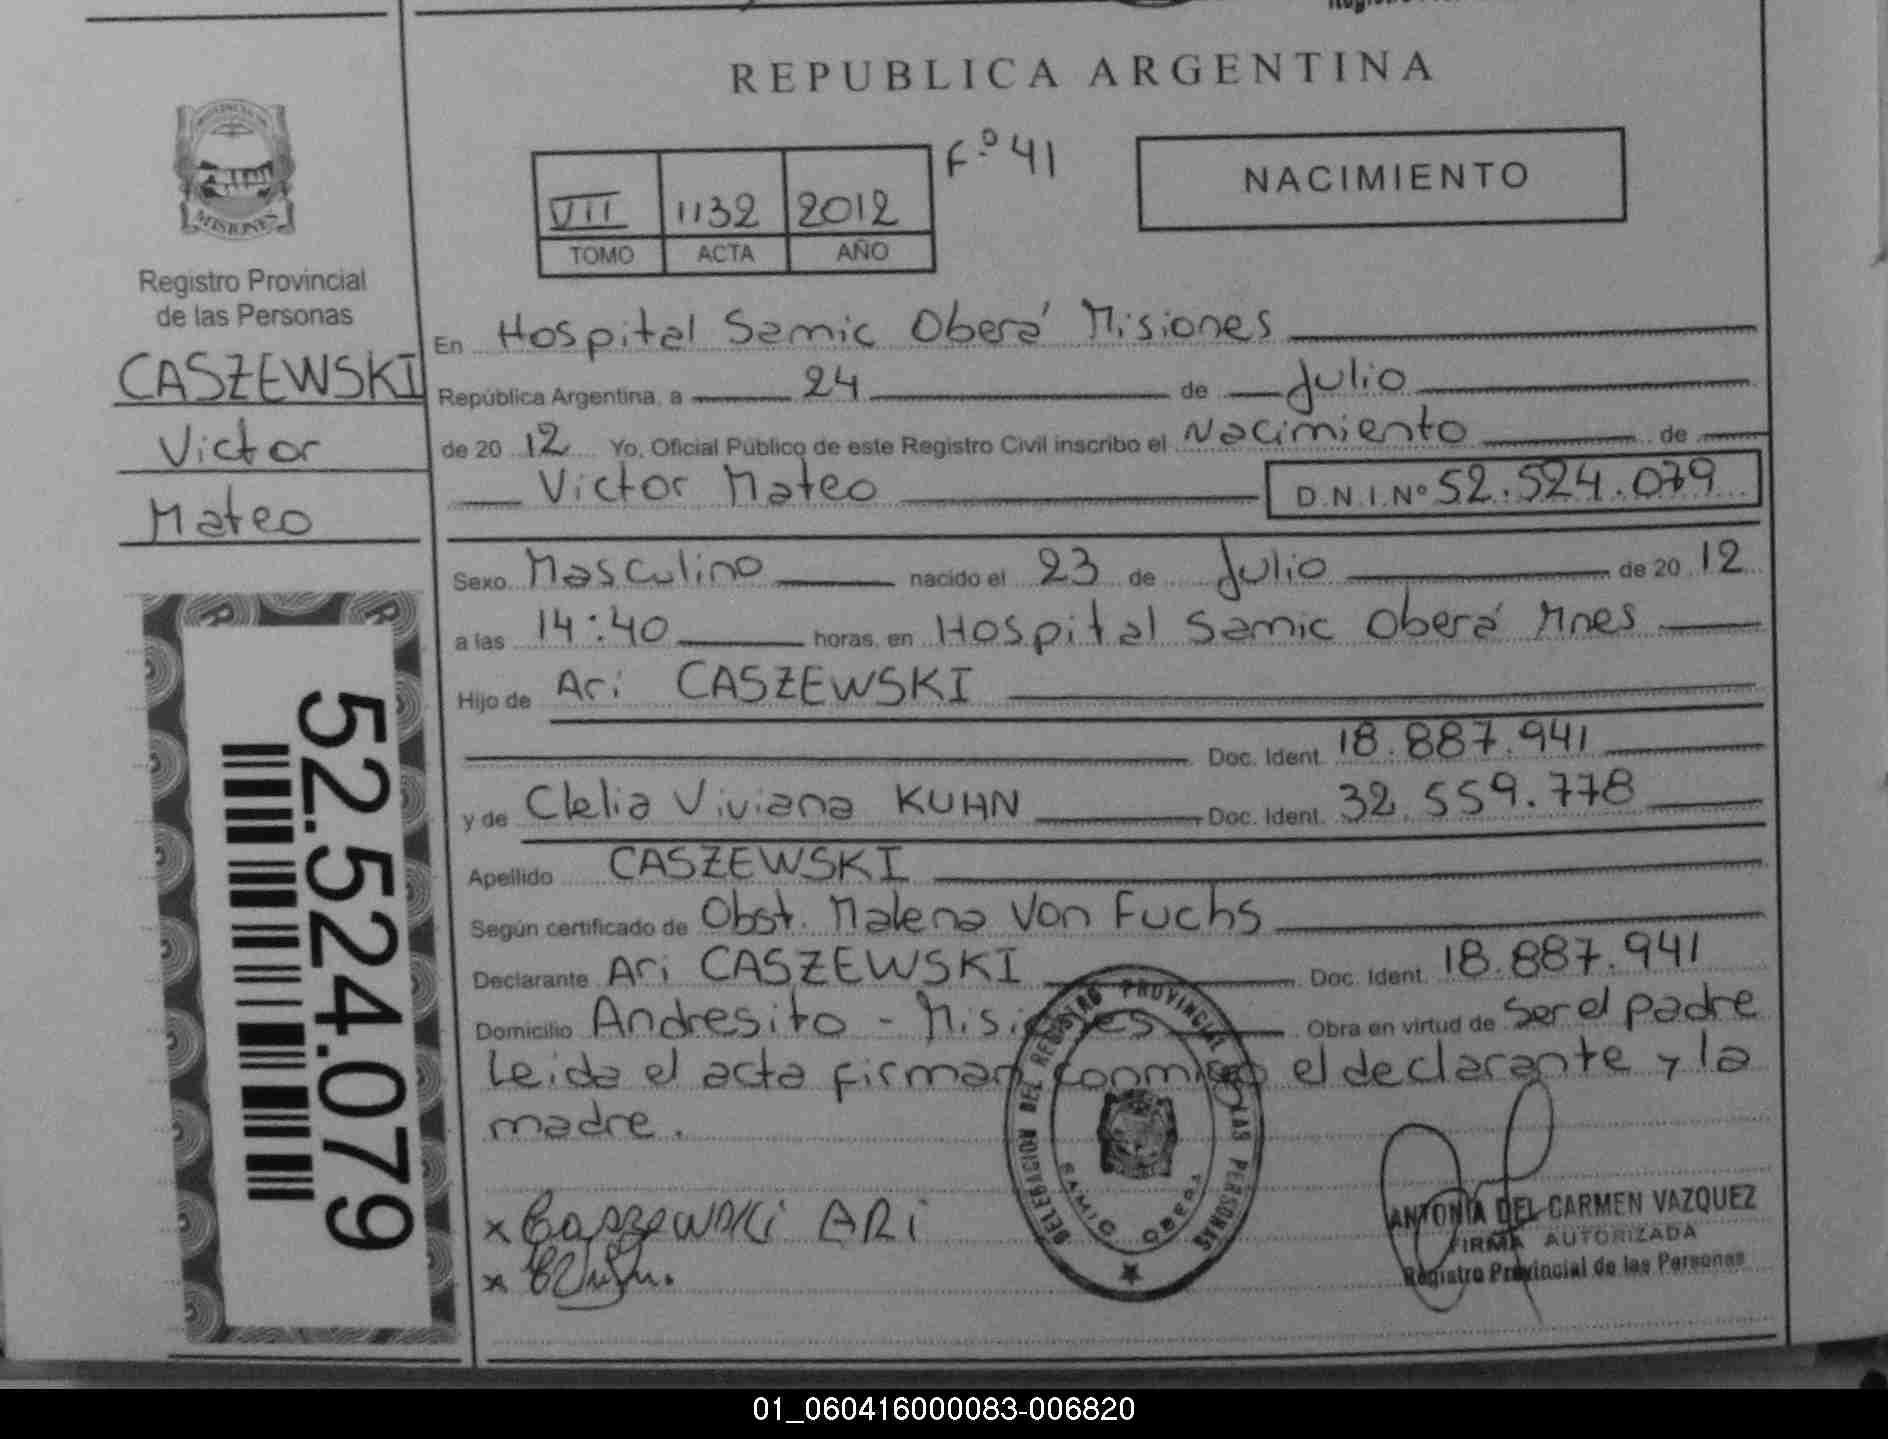 REPUBLICA ARGENTINA
F.º 41
NACIMIENTO
VII 1132 2012
TOMO ACTA AÑO
PROVINCIA DE
MISIONES
Registro Provincial
de las Personas
CASZEWSKI
Victor
Mateo
52.524.079
En Hospital Samic Oberá Misiones
República Argentina, a 24 de Julio
de 2012 Yo, Oficial Público de este Registro Civil inscribo el Nacimiento de
Victor Mateo D.N.I.Nº 52.524.079
Sexo Masculino nacido el 23 de Julio de 2012
a las 14:40 horas, en Hospital Samic Oberá Mnes
Hijo de Ari CASZEWSKI
Doc. Ident. 18.887.941
y de Clelia Viviana KUHN Doc. Ident. 32.559.778
Apellido CASZEWSKI
Según certificado de Obst. Malena Von Fuchs
Declarante Ari CASZEWSKI Doc. Ident. 18.887.941
Domicilio Andresito - Misiones Obra en virtud de ser el padre
Leida el acta firman conmigo el declarante y la
madre.
DELEGACION DEL REGISTRO PROVINCIAL DE LAS PERSONAS
SAMIC OBERA
x Caszewski ARi
x
ANTONIA DEL CARMEN VAZQUEZ
FIRMA AUTORIZADA
Registro Provincial de las Personas
01_060416000083-006820